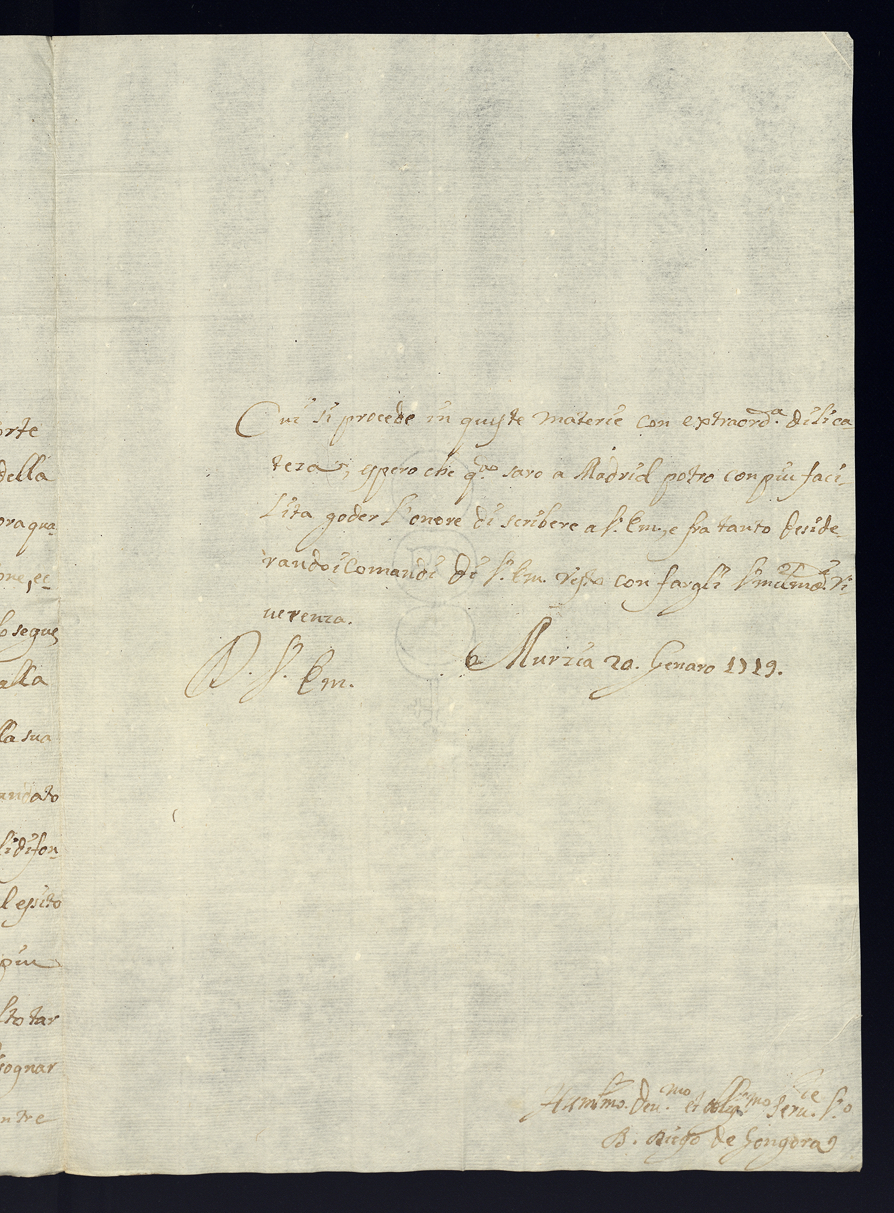 orte
della
ora qua
ne, et
lo segue
alla
lla sua
andato
l esito
piu
to tar
sognar
ntre
Cui si procede in queste materie con extraord.a dilica
teza, espero che q.do saro a Madrid potro con piu faci-
lita goder l'onore di scribere a V. Em. e fra tanto deside-
rando i Comandi di V. Em. resto con fargli ri
uerenza.
D. V. Em.
Murzia 20. Genaro 1719.
Humil.mo Deu.mo et obligat.mo seru.re V.o
D. Diego de Gongora